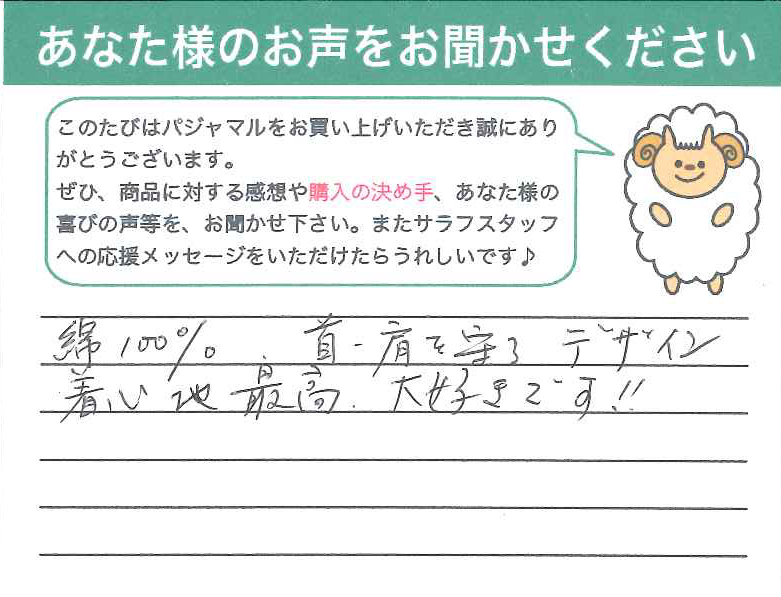 あなた様のお声をお聞かせください
このたびはパジャマルをお買い上げいただき誠にあり
がとうございます。
ぜひ、商品に対する感想や購入の決め手、あなた様の
喜びの声等を、お聞かせ下さい。またサラフスタッフ
への応援メッセージをいただけたらうれしいです♪
綿100%、首・肩を守るデザイン
着心地最高、大好きです!!